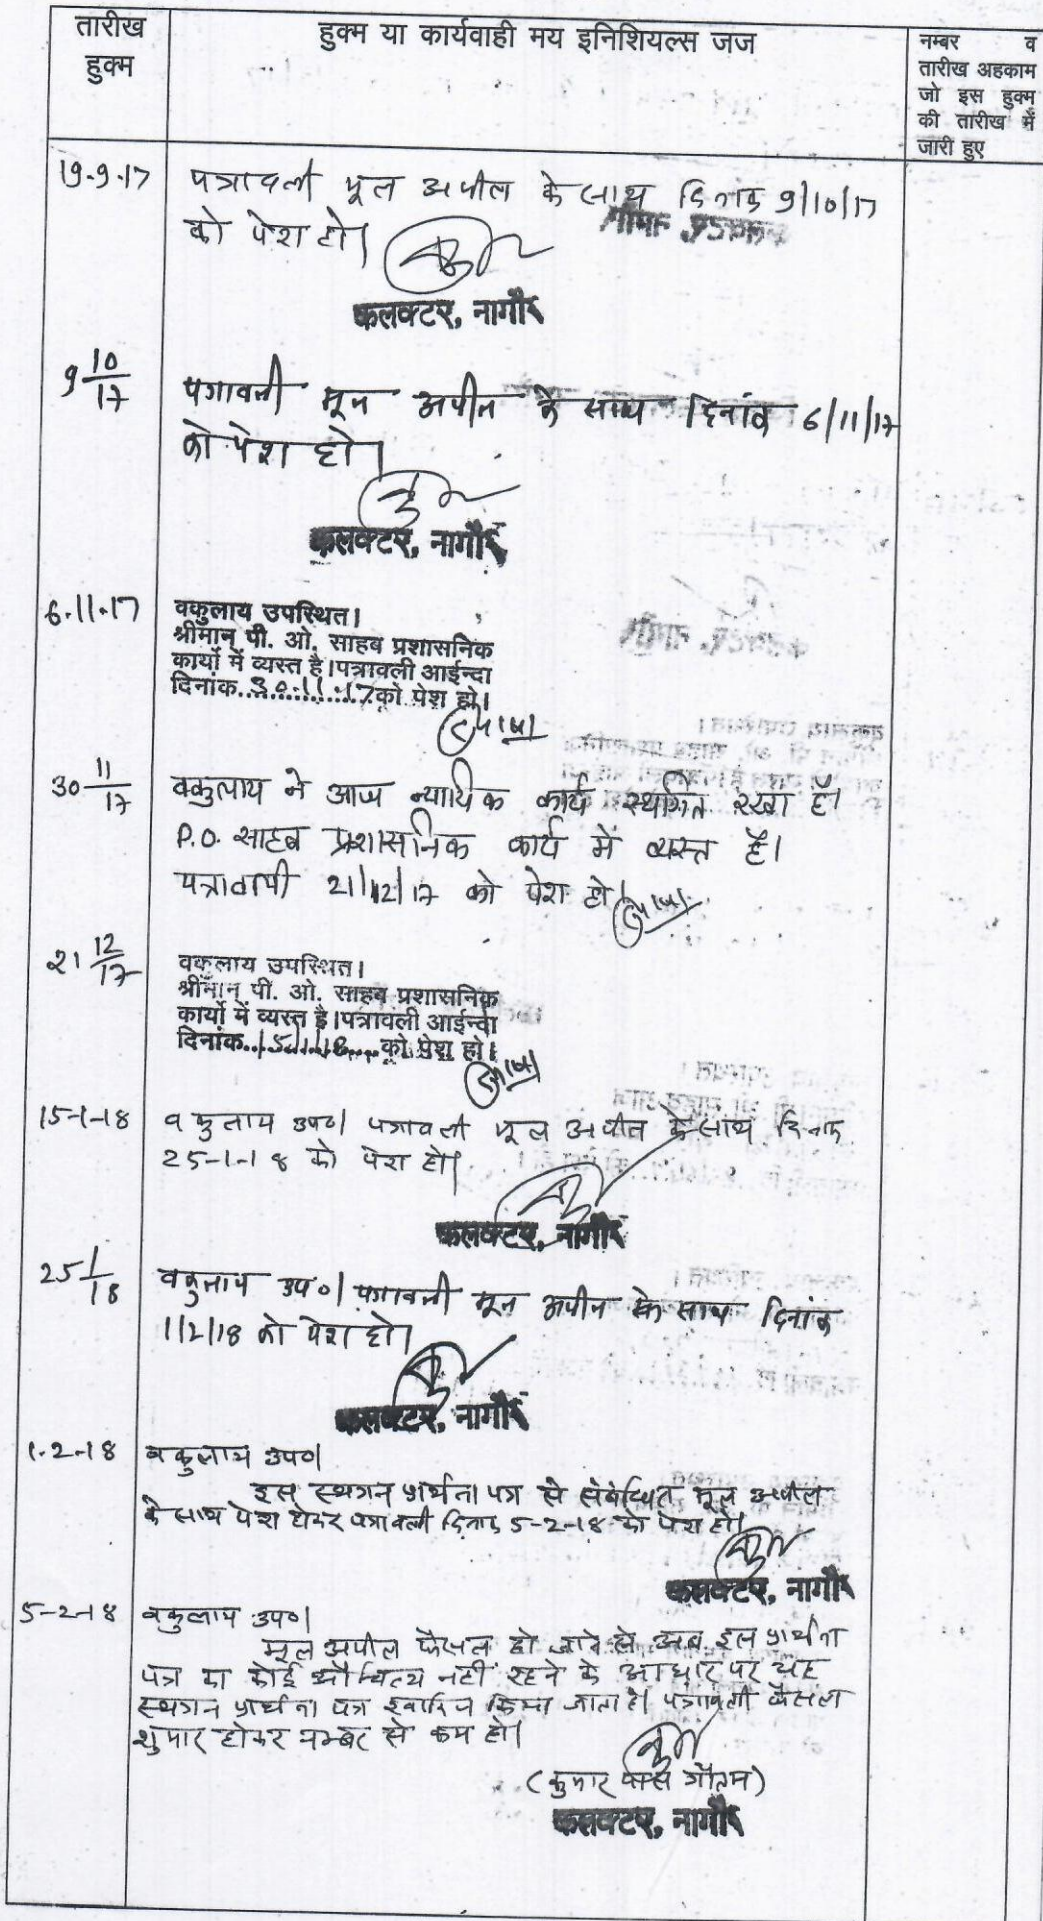 तारीख
हुक्म
हुक्म या कार्यवाही मय इनिशियल्स जज
नम्बर व
तारीख अहकाम
जो इस हुक्म
की तारीख में
जारी हुए
19-9-17 पत्रावली मूल अपील के साथ दिनांक 9/10/17
को पेश हो।
कलक्टर, नागौर
9 10/17 पत्रावली मूल अपील के साथ दिनांक 6/11/17
को पेश हो।
कलक्टर, नागौर
6-11-17 वकुलाय उपस्थित।
श्रीमान् पी. ओ. साहब प्रशासनिक
कार्यो में व्यस्त है। पत्रावली आईन्दा
दिनांक..30-11-17 को पेश हो।
30 11/17 वकुलाय ने आज न्यायिक कार्य स्थगित रखा है।
P.O. साहब प्रशासनिक कार्य में व्यस्त है।
पत्रावली 21/12/17 को पेश हो।
21 12/17 वकुलाय उपस्थित।
श्रीमान् पी. ओ. साहब प्रशासनिक
कार्यो में व्यस्त है। पत्रावली आईन्दा
दिनांक..15/1/18....को पेश हो।
15-1-18 वकुलाय उप०। पत्रावली मूल अपील के साथ दिनांक
25-1-18 को पेश हो।
कलक्टर, नागौर
25 1/18 वकुलाय उप०। पत्रावली मूल अपील के साथ दिनांक
1/2/18 को पेश हो।
कलक्टर, नागौर
1-2-18 वकुलाय उप०।
इस स्थगन प्रार्थना पत्र से संबंधित मूल अपील
के साथ पेश होकर पत्रावली दिनांक 5-2-18 को पेश हो।
कलक्टर, नागौर
5-2-18 वकुलाय उप०।
मूल अपील फैसल हो जाने से अब इस प्रार्थना
पत्र का कोई औचित्य नहीं रहने के आधार पर यह
स्थगन प्रार्थना पत्र खारिज किया जाता है। पत्रावली फैसल
शुमार होकर नम्बर से कम हो।
(कुमार पाल गौतम)
कलक्टर, नागौर